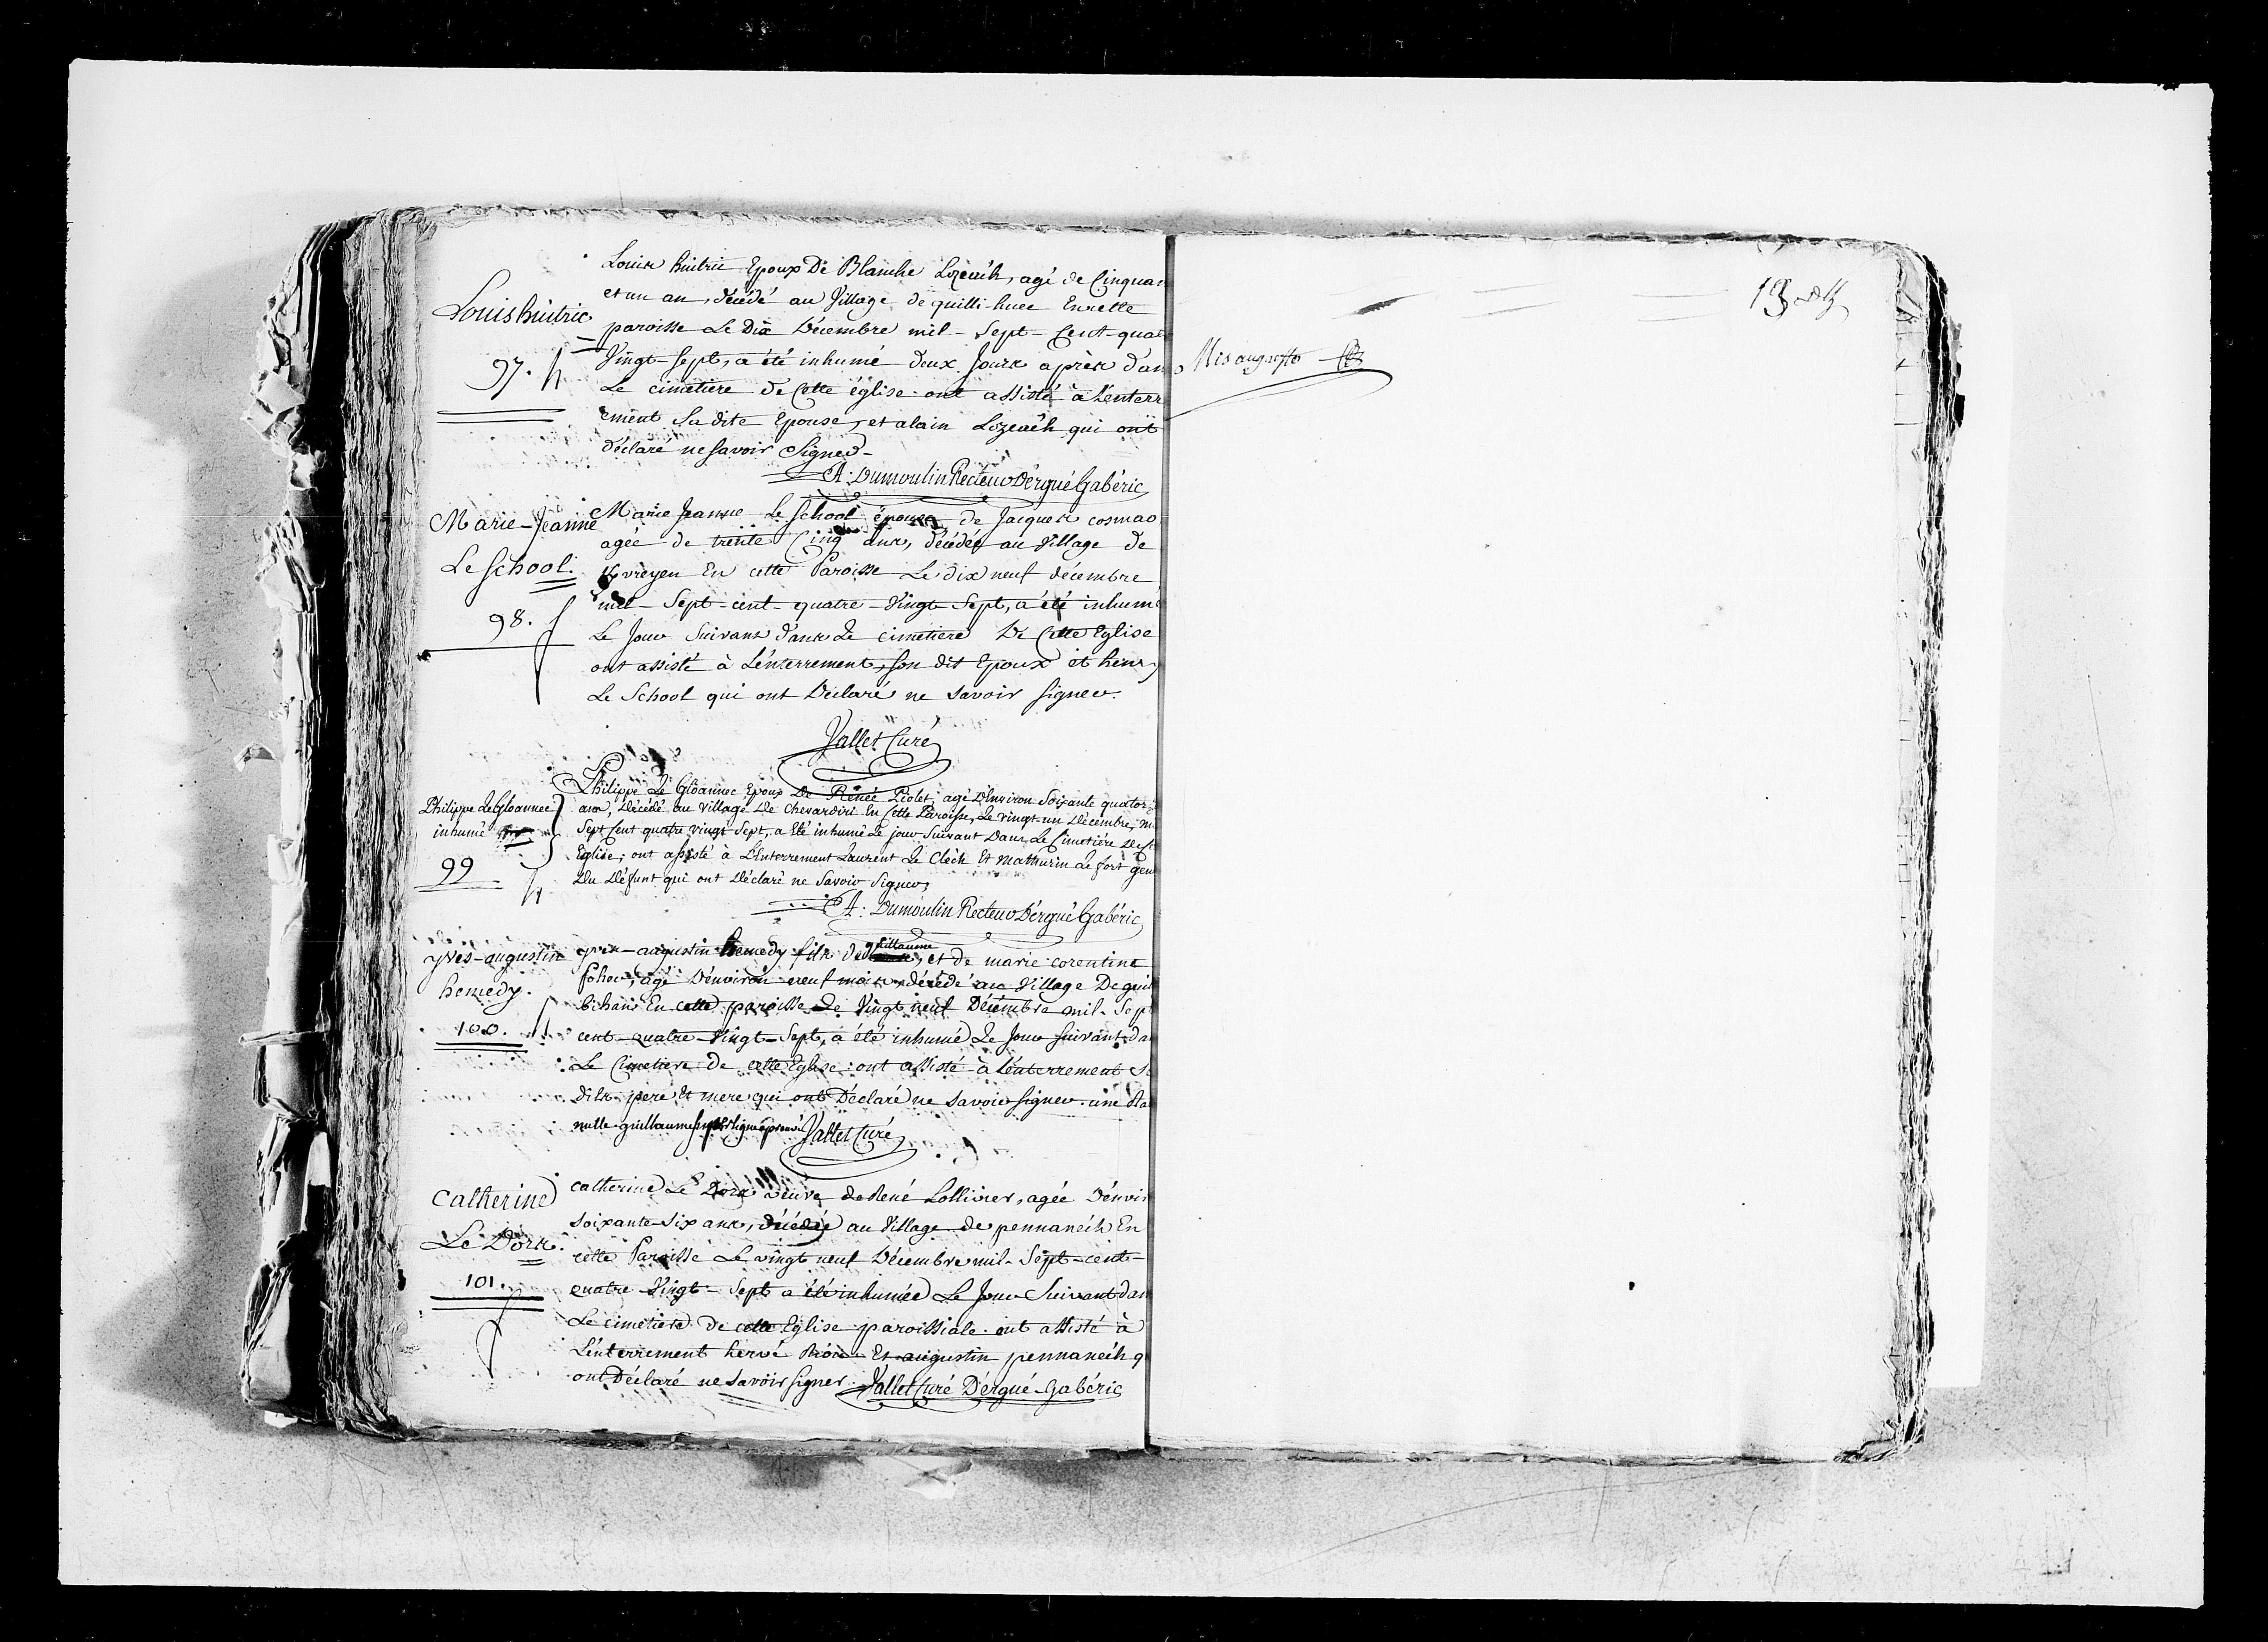 Louis huitric
97.
Louis huitric Epoux De Blanche Lozeaéh, agé de Cinquan
et un an, décédé au Village de quilli-huec En cette
paroisse Le Dix Décembre mil-Sept-Cent-quat
Vingt-Sept, a été inhumé deux Jours après dans
Le cimetiere de Cette église. ont assisté à L'enterr
ement Sa dite Epouse, et alain Lozeaéh qui ont
Déclaré ne Savoir Signer-
A: Dumoulin Recteur D'ergué Gabéric
Marie-Jeanne
Le School.
98.
Marie Jeanne Le School épouse de Jacques cosmao
agée de trente Cinq ans, décédée au Village de
en cette Paroisse Le dix neuf décembre
mil-Sept-cent-quatre-Vingt-Sept, a été inhumé
Le Jour Suivant dans Le cimetiere De Cette Eglise
ont assisté à L'enterrement, Son dit Epoux et henry
Le School qui ont Déclaré ne Savoir Signer.
Vallet Curé
Philippe Le Gloannec
inhumé
99
Philippe Le Gloannec Epoux De Renée Riolet, agé D'Environ Soixante quator
ans, Décédé au village De Chevardiri En Cette Paroisse, Le vingt-un Décembre, m
Sept Cent quatre vingt Sept, a Eté inhumé Le jour Suivant Dans Le Cimetiére De C
Eglise; ont assisté à L'Enterrement Laurent Le Clech Et Mathurin Le fort gen
Du Défunt qui ont Déclaré ne Savoir Signer,
A: Dumoulin Recteur D'ergué Gabéric
yves-augustin
hemedy.
100.
yves-augustin hemedy fils de guillaume, et de marie corentine
, agé D'environ neuf mois, décédé au Village De quil
bihan En cette paroisse Le Vingt neuf Décembre mil-Sept
cent-quatre-Vingt-Sept, a été inhumé Le Jour Suivant da
Le Cimetiere De cette Eglise: ont assisté à L'enterrement S
dits pere Et mere qui ont Déclaré ne Savoir Signer. une
nulle guillaume approuvé Vallet Curé
Catherine
Le Dors.
101.
Catherine Le Dors veuve de René Lollivier, agée D'envir
soixante-six ans, décédée au Village de pennaneéh En
cette Paroisse Le vingt neuf Décembre mil-Sept-cent-
quatre Vingt-Sept a été inhumée Le Jour Suivant dan
Le cimetiere de cette Eglise paroissiale. ont assisté à
L'enterrement hervé Et augustin pennaneéh q
ont Déclaré ne Savoir signer. Vallet Curé D'ergué-Gabéric